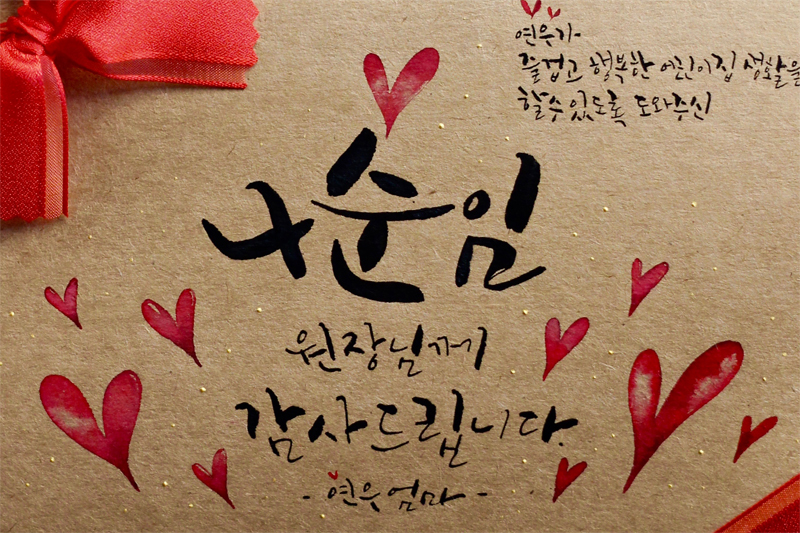 연우가
즐겁고 행복한 어린이집 생활을
할수있도록 도와주신
나순임
원장님께
감사드립니다.
- 연우엄마 -